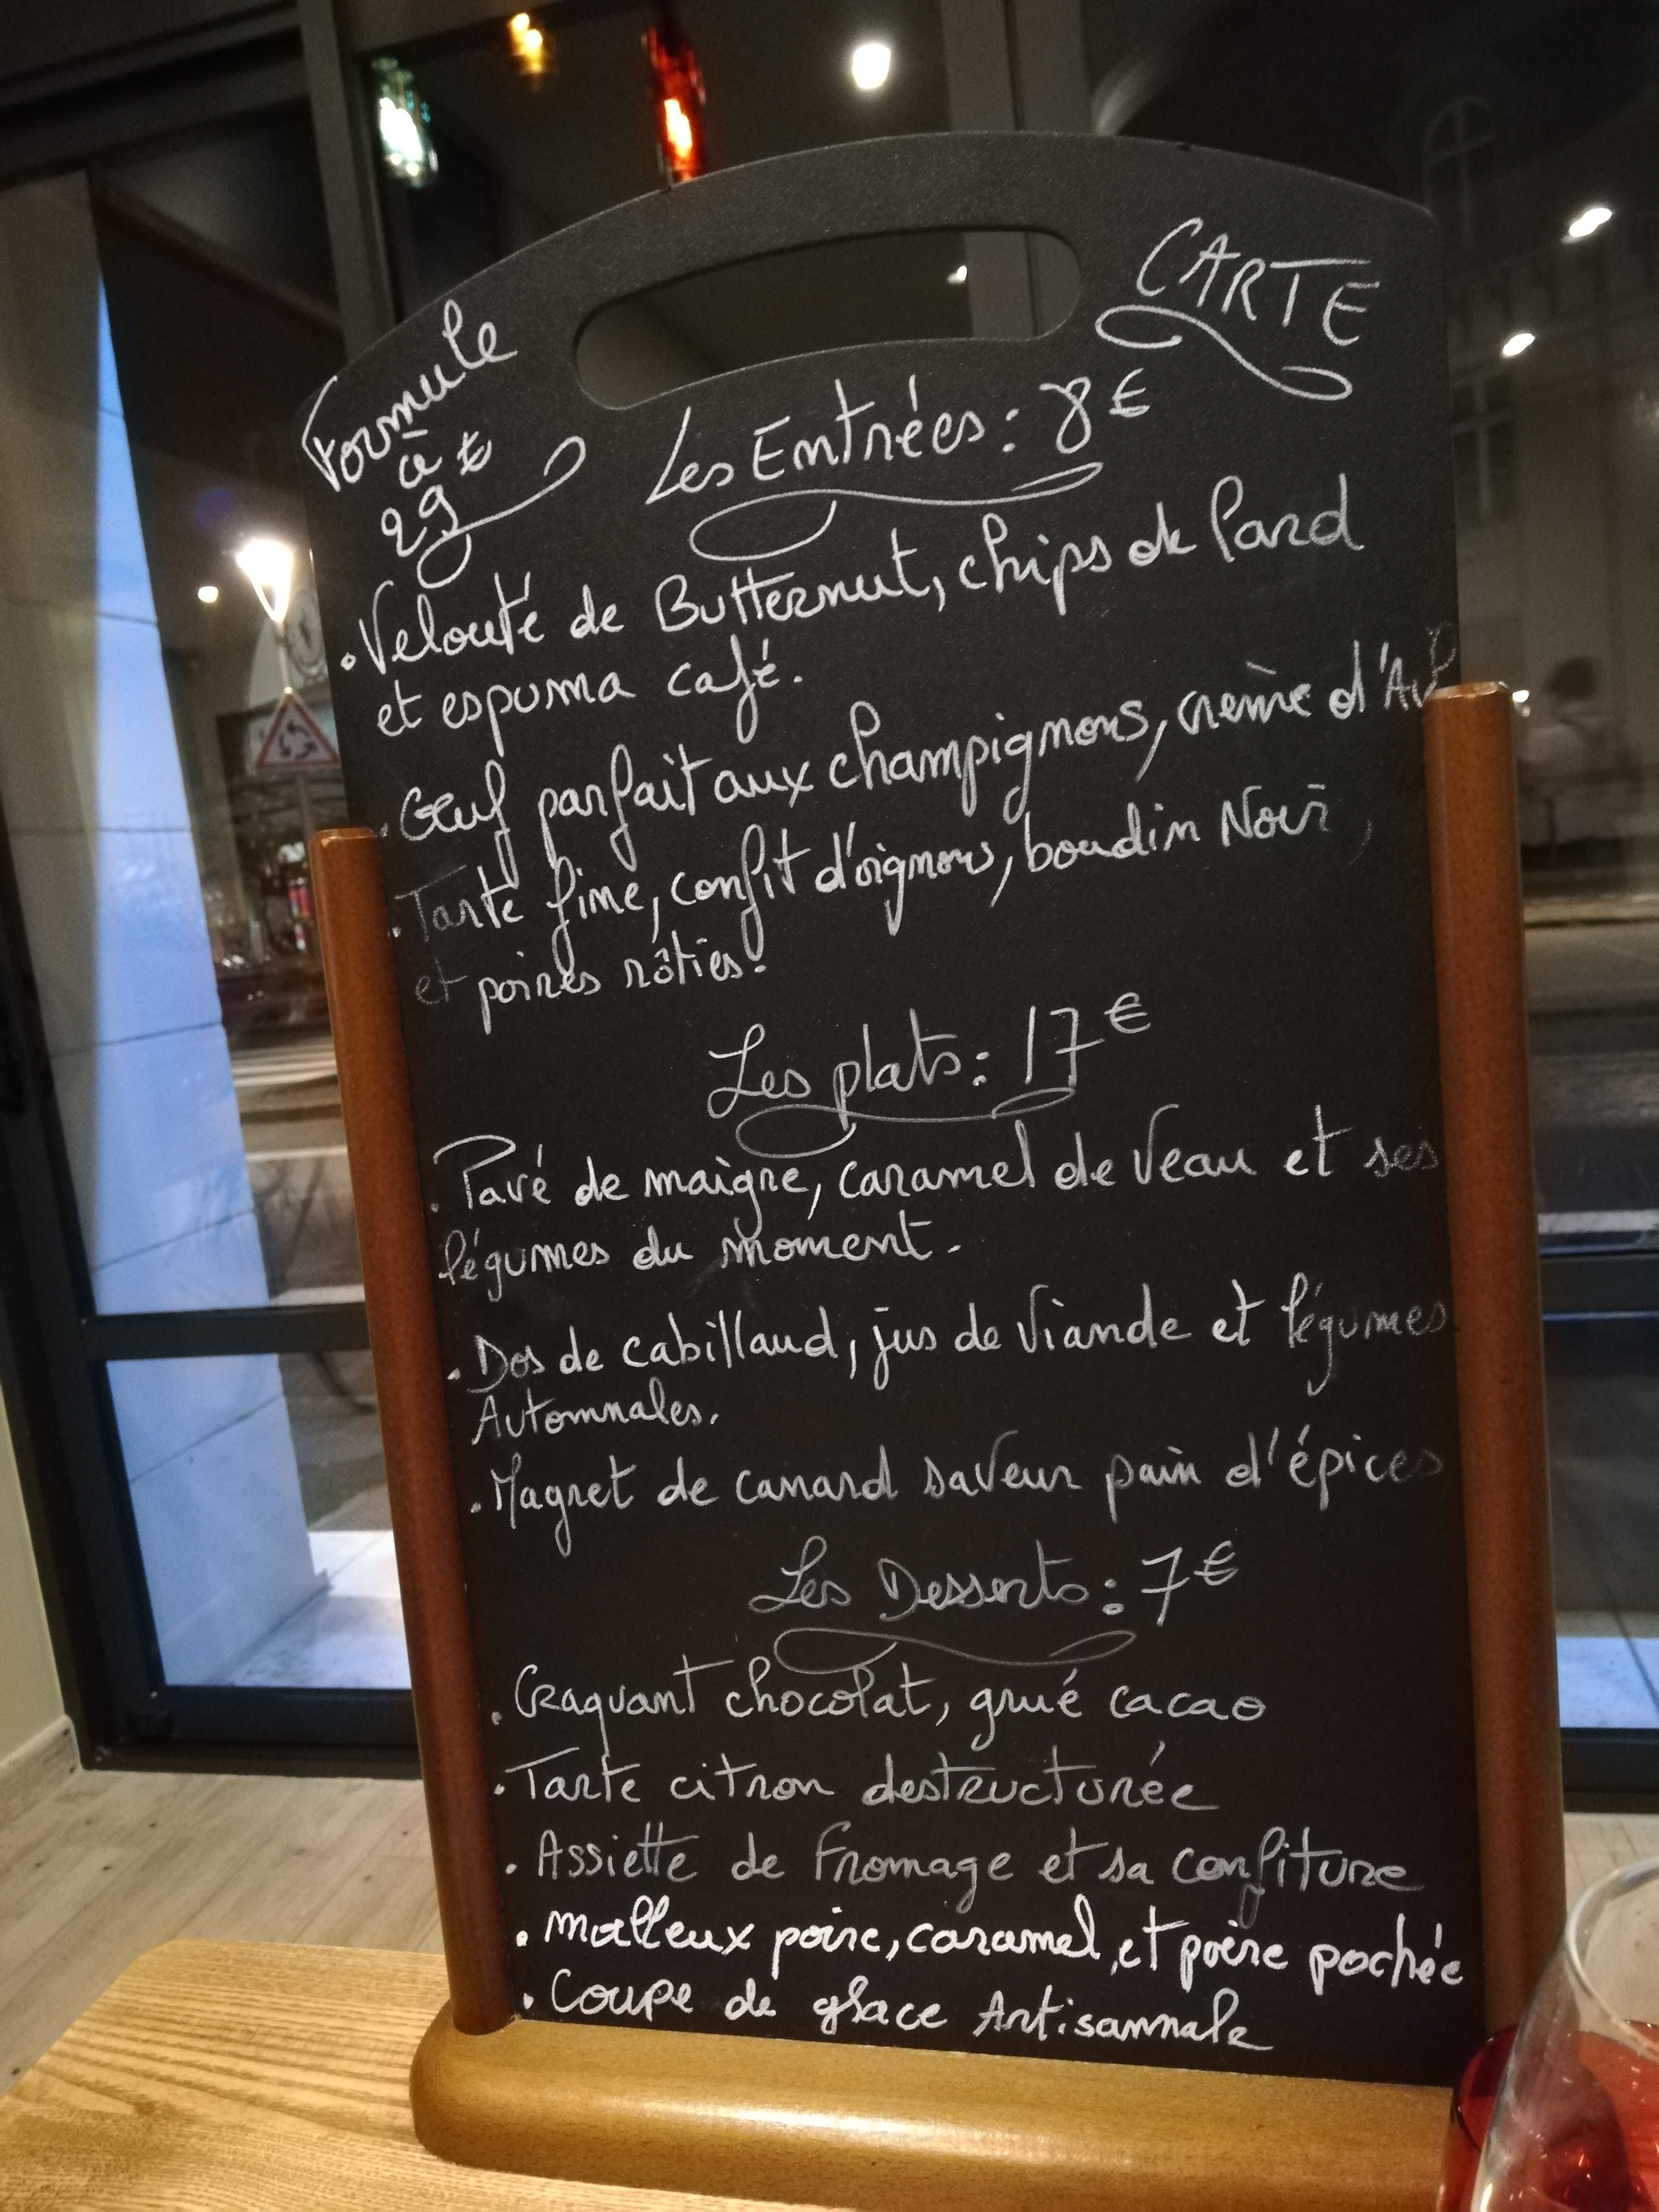 Formule
à €
29
CARTE
Les Entrées : 8€
. Velouté de Butternut, chips de lard
et espuma café.
. Oeuf parfait aux champignons, crème d'Ail
. Tarte fine, confit d'oignons, boudin Noir,
et poires rôties.
Les plats : 17€
. Pavé de maigre, caramel de Veau et ses
légumes du moment.
. Dos de cabillaud, jus de Viande et légumes
Automnales.
. Magret de canard saveur pain d'épices
Les Desserts : 7€
. Craquant chocolat, grué cacao
. Tarte citron destructurée
. Assiette de Fromage et sa confiture
. moelleux poire, caramel, et poire pochée
. Coupe de glace Artisannale